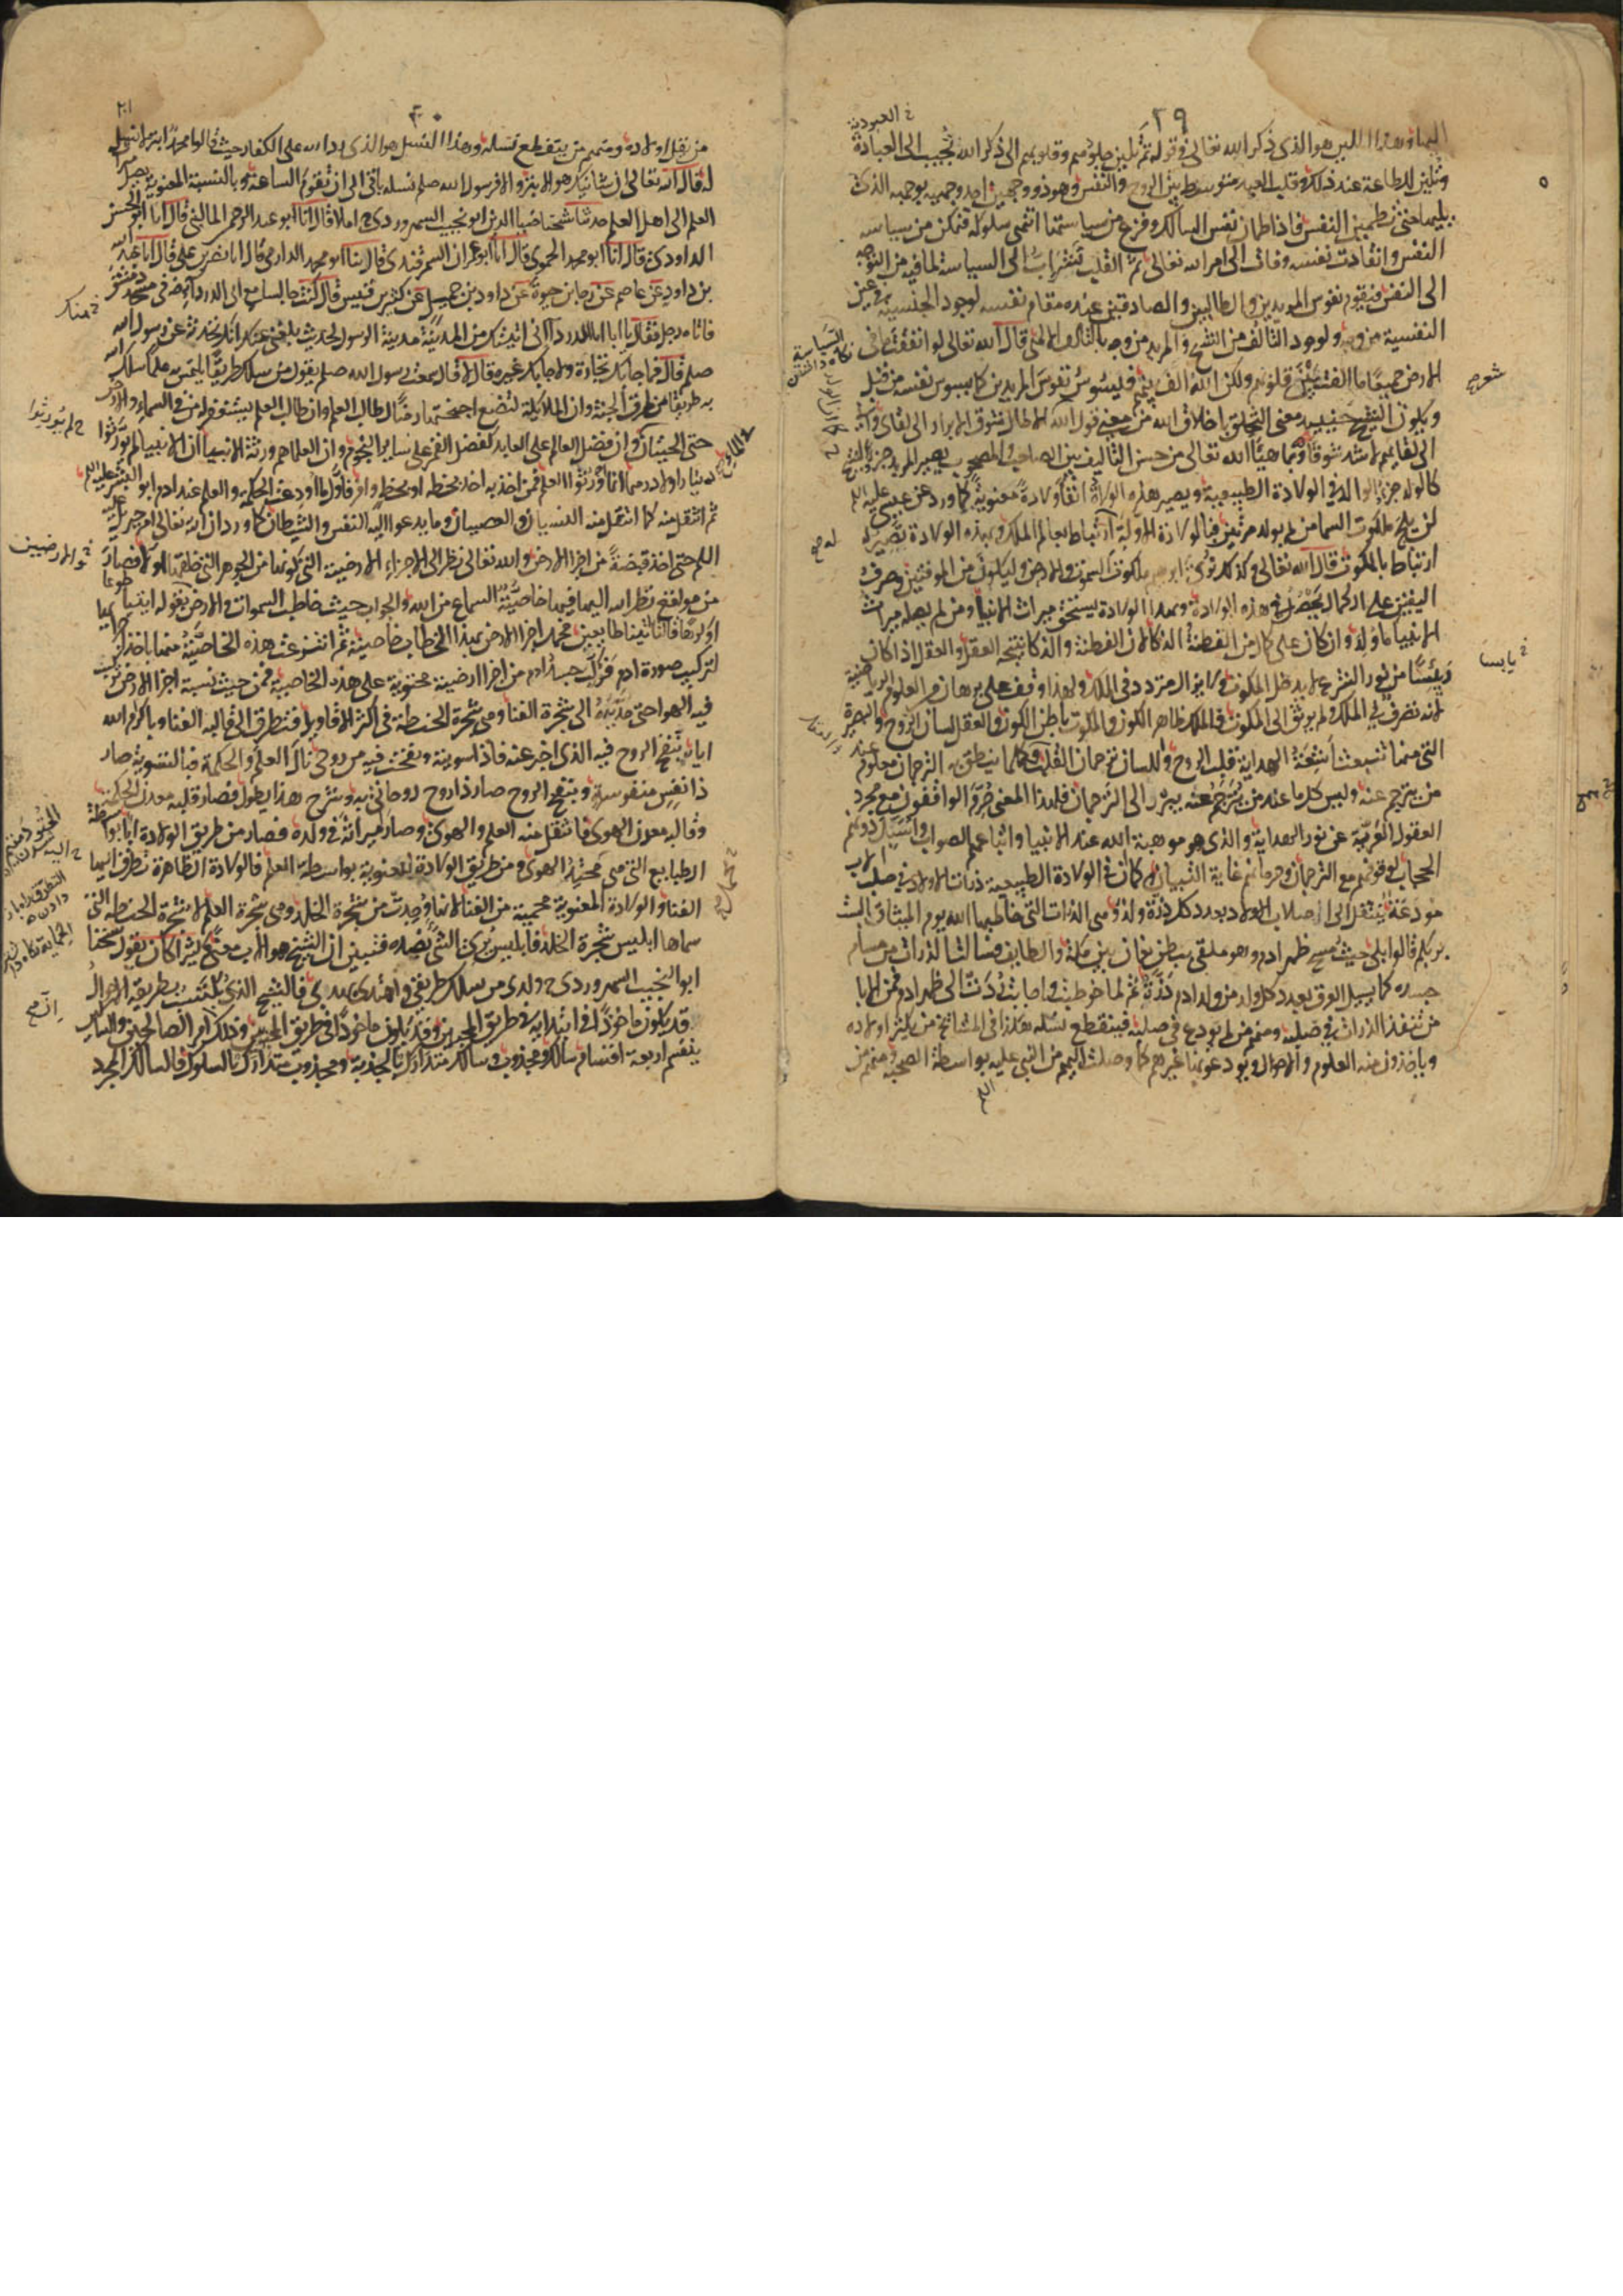 ٢٩
اليها وهذا اللين هو الذي ذكر الله تعالى في قوله ثم تلين جلودهم وقلوبهم الى ذكر الله تجيب الى العبادة
خ العبودية
وتلين للطاعة عند ذلك وقلب العبد متوسط بين الروح والنفس وهو ذو وجهين احد وجهيه بوجهه الذي
يليها حتى تطمين النفس فاذا طمان نفس السالك وفرغ من سياستها انتهى سلوكه فتمكن من سياسه
النفس وانقادت نفسه وفات الى امر الله تعالى ثم القلب تشراب الى السياسة لما فيه من التوجه
الى النفس فيقوم نفوس المريدين والطالبين والصادقين عنده مقام نفسه لوجود الجنسية في عين
النفسية من وجه ولوجود التالف من الشيخ والمريد من وجه بالتالف الالهى قال الله تعالى لو انفقت ما في
الارض جميعا ما الفت بين قلوبهم ولكن الله الف بينهم فيسوس نفوس المريدين كما يسوس نفسه من قبل
ويكون الشيخ حينيد معنى التخلق باخلاق الله من معنى قول الله الا طال شوق الابرار الى لقاى وانى
الى لقايهم لاشد شوقا وبما هيا الله تعالى من حسن التاليف بين الصاحب والمصحوب يصير المريد جزو الشيخ
كما الولد جزو الوالد في الولادة الطبيعية ويصير هذه الولادة انفا ولادة معنوية كما ورد عن عيسى عليه
لن يلج ملكوت السما من لم يولد مرتين فبالولادة الاولى ارتباط بعالم الملك وبهذه الولادة يصير له
ارتباط بالملكوت قال الله تعالى وكذلك نرى ابرهيم ملكوت السموت والارض وليكون من الموقنين وصرف
اليقين على الكمال يحصل في هذه الولادة وبهذا الولادة يستحق ميراث الانبيا ومن لم يصله ميراث
الانبيا ما ولد وان كان على كمال من الفطنة والذكا لان الفطنة والذكا نتيجة العقل والعقل اذا كان
يابسا من نور الشرع لا يدخل الملكوت ولا يزال مترددا في الملك ولهذا وقف على برهان من العلوم الرياضية
لانه تصرف في الملك ولم يرتق الى الملكوت والملك ظاهر الكون والملكوت باطن الكون والعقل لسان الروح والبصيرة
التي منها تنبعث اشعة الهداية قلب الروح واللسان ترجمان القلب وكلما ينطق به الترجمان معلوم
من يترجم عنه وليس كل ما عند من يترجم عنه يبرز الى الترجمان فلهذا المعنى حرم الواقفون مع مجرد
العقول العرية عن نور الهداية والذى هو موهبة الله عند الانبيا واتباعهم الصواب واسبل دونهم
الحجاب لوقوفهم مع الترجمان وحرمانهم غاية التبيان وكما ان في الولادة الطبيعية ذرات الاولاد في صلب الاب
مودعة ينتقل الى اصلاب الاولاد بعدد كل ولد ذرة وهى الذرات التي خاطبها الله يوم الميثاق الست
بربكم قالوا بلى حيث مسح ظهر ادم وهو ملقى ببطن نعمان بين مكة والطايف فسالت الذرات من مسام
جسده كما يسيل العرق بعدد كل ولد من ولد ادم ذرة ثم لما خوطبت واجابت ردت الى ظهر ادم فمن الابا
من تنفذ الذرات في صلبه ومنهم من لم يودع في صلبه فينقطع نسله هكذا في المشايخ من يكثر اولاده
وياخذون منه العلوم والاحوال ويودعونها غيرهم كما وصلت اليهم من النبى عليه بواسطة الصحبة ومنهم من
شعر ص
خ يابسا
٣٠
٢٠١
من يقل اولاده ومنهم من ينقطع نسله وهذا النسل هو الذي رد الله على الكفار حيث قالوا محمد ابتر لا نسل
له قال الله تعالى ان شانيك هو الابتر والا فرسول الله صلم نسله باقى الى ان تقوم الساعة وبالنسبة المعنوية يصل ميراث
العلم الى اهل العلم حدثنا شيخنا ضيا الدين ابو نجيب السهروردى ح املا قال انا ابو عبد الرحمن المالينى قال انا ابو الحسن
الداودى قال انا ابو محمد الحموى قال انا ابو عمران السمرقندى قال انا ابو محمد الدارمى قال انا نصر بن على قال انا عبد الله
بن داود عن عاصم عن رجا بن حيوة عن داود بن جميل عن كثير بن قيس قال كنت جالسا مع ابى الدرداء رض في مسجد دمشق
فاتاه رجل فقال يا ابا الدرداء انى اتيتك من المدينة مدينة الرسول لحديث بلغنى عنك انك تحدثه عن رسول الله
صلم قال فما جا بك تجارة ولا جا بك غيره قال لا قال سمعت رسول الله صلم يقول من سلك طريقا يلتمس علما سلك الله
به طريقا من طرق الجنة وان الملايكة لتضع اجنحتها رضا لطالب العلم وان طالب العلم يستغفر له من في السماء والارض
حتى الحيتان وان فضل العالم على العابد كفضل القمر على ساير النجوم وان العلما هم ورثة الانبيا ان الانبيا لم يورثوا
دينارا ولا درهما انما اورثوا العلم فمن اخذ به اخذ بحظه او بحظ وافر فاول ما اودعت الحكمه والعلم عند ادم ابو البشر عليه
ثم انتقل منه كما انتقل منه النسيان والعصيان وما يدعو اليه النفس والشيطان كما ورد ان الله تعالى امر جبريل عليه
حتى اخذ قبضة من اجزا الارض والله تعالى نظر الى الاجزاء الارضية التى كونها من الجوهر التى خلقها اولا فصار
من موقع نظر الله اليها فيها خاصية السماع من الله والجواب حيث خاطب السموات والارض بقوله ايتيا طوعا
او كرها قالتا اتينا طايعين فحمل اجزا الارض بهذا الخطاب خاصيته ثم انتزعت هذه الخاصية منها باخذ اجزائها
لتركيب صورة ادم فركب جسد ادم من اجزا ارضية محتوية على هذه الخاصية فمن حيث نسبة اجزا الارض تركب
فيه الهوا حتى مد يده الى شجرة الفنا وهى شجرة الحنطة في اكثر الاقاويل فتطرق الى قالبه الفنا وباكرام الله
اياه بنفخ الروح فيه الذى اخبر عنه فاذا سويته ونفخت فيه من روحى نال العلم والحكمة فبالتسوية صار
ذا نفس منفوسة وبنفخ الروح صار ذا روح روحانى وشرح هذا يطول فصار قلبه معدن الحكمة
وقالبه معدن الهوى فانتقل منه العلم والهوى وصار ميراثه في ولده فصار من طريق الولادة ابا بواسطة
الطبايع التى هى محتد الهوى ومن طريق الولادة المعنوية بواسطة العلم فالولادة الظاهرة تطرق اليها
الفنا والولادة المعنوية محمية من الفنا لانها وجدت من شجرة الخلد وهى شجرة العلم لا شجرة الحنطة التى
سماها ابليس شجرة الخلد فابليس يرى الشى بضده فتبين ان الشيخ هو الاب معنى كثيرا كان يقول شيخنا
ابو النجيب السهروردى ح ولدى من سلك طريقى واهتدى بهديى فالشيخ الذى يكتسب بطريقه الاحوال
قد يكون ماخوذا في ابتدايه في طريق المحبين وقد يكون ماخوذا في طريق المحبوبين وذلك ان امر الصالحين والسالكين
ينقسم اربعة اقسام سالك ومجذوب وسالك متدارك بالجذبة ومجذوب متدارك بالسلوك فالسالك المجرد
خ عنك
خ لم يورثوا
خ والارضيين